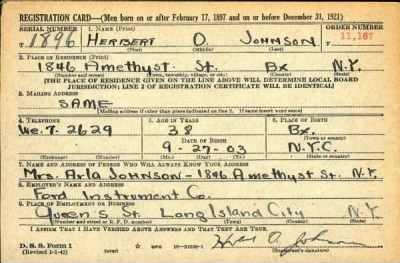 REGISTRATION CARD—(Men born on or after February 17, 1897 and on or before December 31, 1921)
SERIAL NUMBER 1. NAME (Print) ORDER NUMBER
1896 HERBERT O. JOHNSON 11,167
(First) (Middle) (Last)
2. PLACE OF RESIDENCE (Print)
1846 Amethyst St. Bx N.Y.
(Number and street) (Town, township, village, or city) (County) (State)
[THE PLACE OF RESIDENCE GIVEN ON THE LINE ABOVE WILL DETERMINE LOCAL BOARD
JURISDICTION; LINE 2 OF REGISTRATION CERTIFICATE WILL BE IDENTICAL]
3. MAILING ADDRESS
SAME
[Mailing address if other than place indicated on line 2. If same insert word same]
4. TELEPHONE 5. AGE IN YEARS 6. PLACE OF BIRTH
We. 7-2629 38 Bx.
DATE OF BIRTH (Town or county)
9-27-03 N.Y.C.
(Exchange) (Number) (Mo.) (Day) (Yr.) (State or country)
7. NAME AND ADDRESS OF PERSON WHO WILL ALWAYS KNOW YOUR ADDRESS
Mrs. Arla JOHNSON-1846 Amethyst St. N.Y.
8. EMPLOYER'S NAME AND ADDRESS
Ford Instrument Co.
9. PLACE OF EMPLOYMENT OR BUSINESS
Queen's St. Long Island City N.Y.
(Number and street or R. F. D. number) (Town) (County) (State)
I AFFIRM THAT I HAVE VERIFIED ABOVE ANSWERS AND THAT THEY ARE TRUE.
D. S. S. Form 1
(Revised 1-1-42) (over) GPO 16—21630-1 O. Johnson
(Registrant's signature)